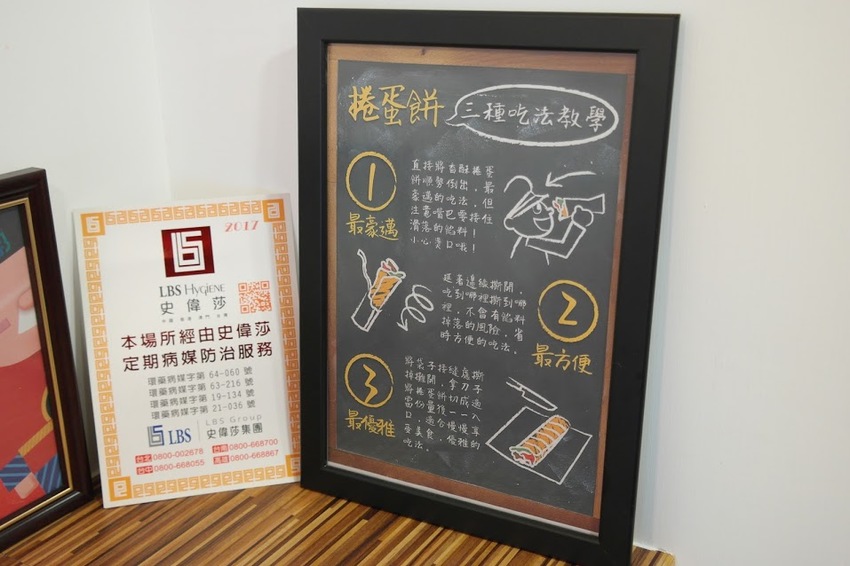 2017
LBS HYGIENE
史偉莎
中國 香港 澳門 台灣
本場所經由史偉莎
定期病媒防治服務
環藥病媒字第 64-060 號
環藥病媒字第 63-216 號
環藥病媒字第 19-134 號
環藥病媒字第 21-036 號
LBS
LBS Group
史偉莎集團
台北0800-002678 台南0800-668700
台中0800-668055 高雄0800-668867
捲蛋餅
三種吃法教學
1
最豪邁
直接將香酥捲蛋
餅順勢倒出，最
豪邁的吃法，但
注意嘴巴要接住
滑落的餡料！
小心燙口哦！
2
最方便
延著邊緣撕開，
吃到哪裡撕到哪
裡，不會有餡料
掉落的風險，省
時方便的吃法。
3
最優雅
將袋子接縫處撕
掉攤開，拿刀子
將捲蛋餅切成適
當份量後一一入
口，適合慢慢享
受美食，優雅的
吃法。